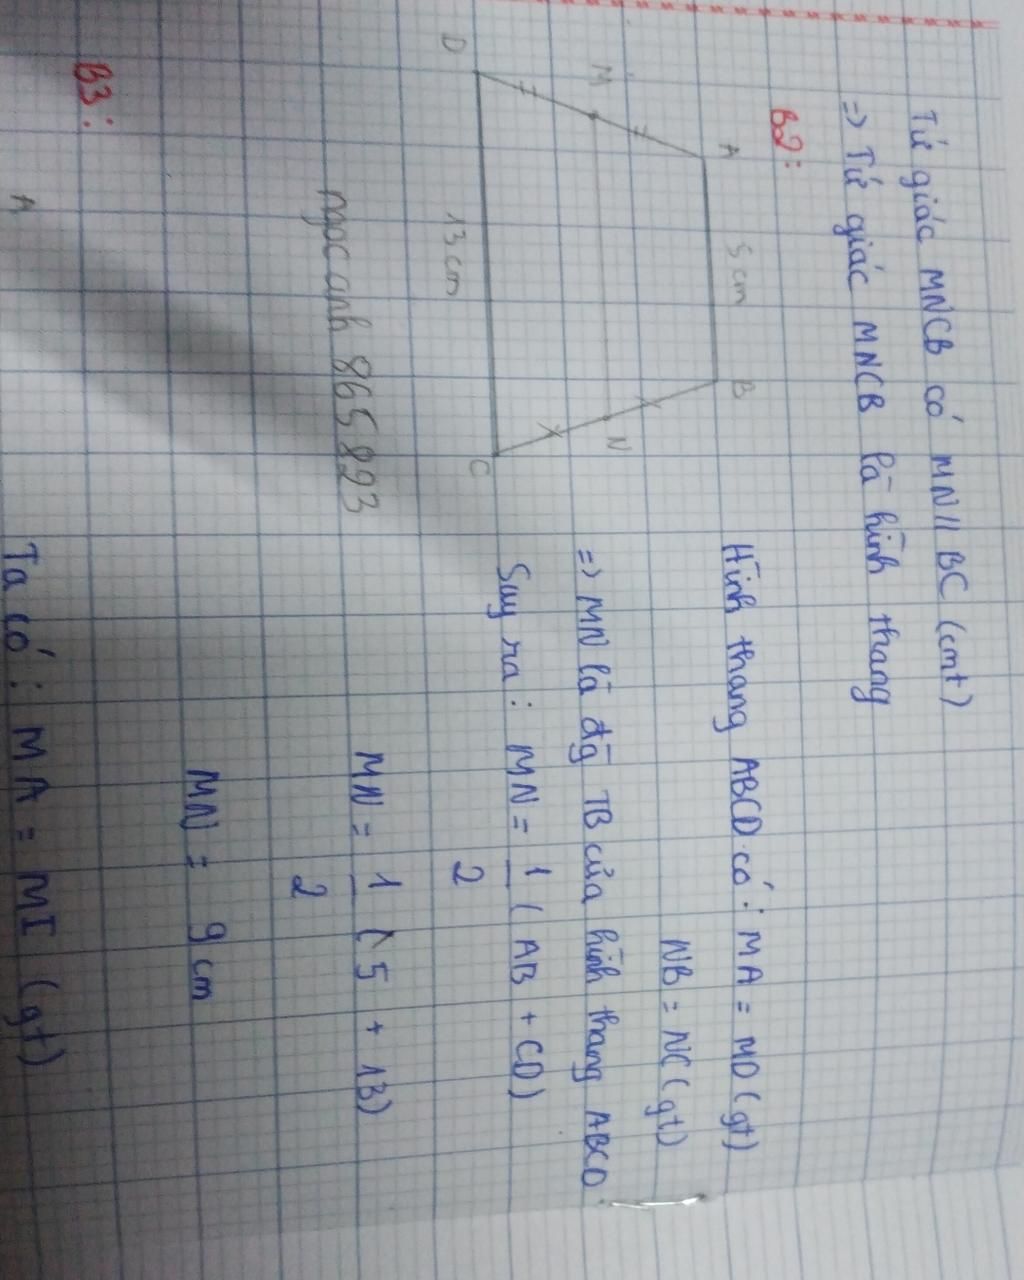 Tứ giác MNCB có MN // BC (cmt)
=> Tứ giác MNCB là hình thang
B2:
A 5cm B
M N
D C
13cm
ngocanh865893
Hình thang ABCD có: MA = MD (gt)
NB = NC (gt)
=> MN là đg TB của hình thang ABCD
Suy ra: MN = 1/2 (AB + CD)
MN = 1/2 (5 + 13)
MN = 9cm
B3:
A
Ta có: MA = MI (gt)